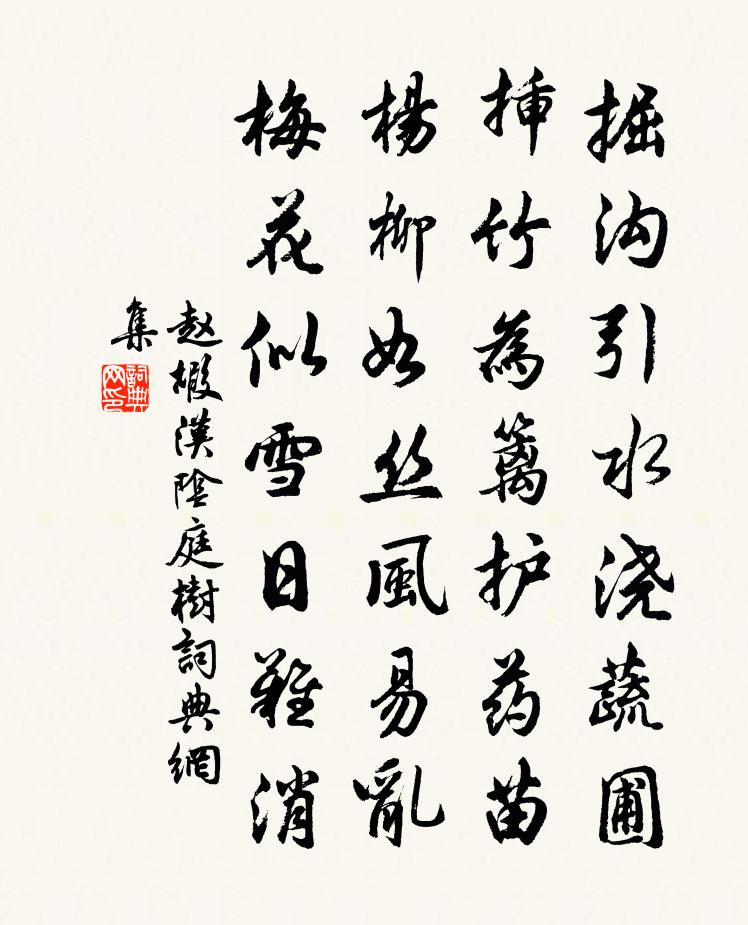 掘沟引水浇蔬圃
挿竹為篱护药苗
楊柳如丝風易亂
梅花似雪日難消
赵嘏漢陰庭樹詞典網
集
詞典网印